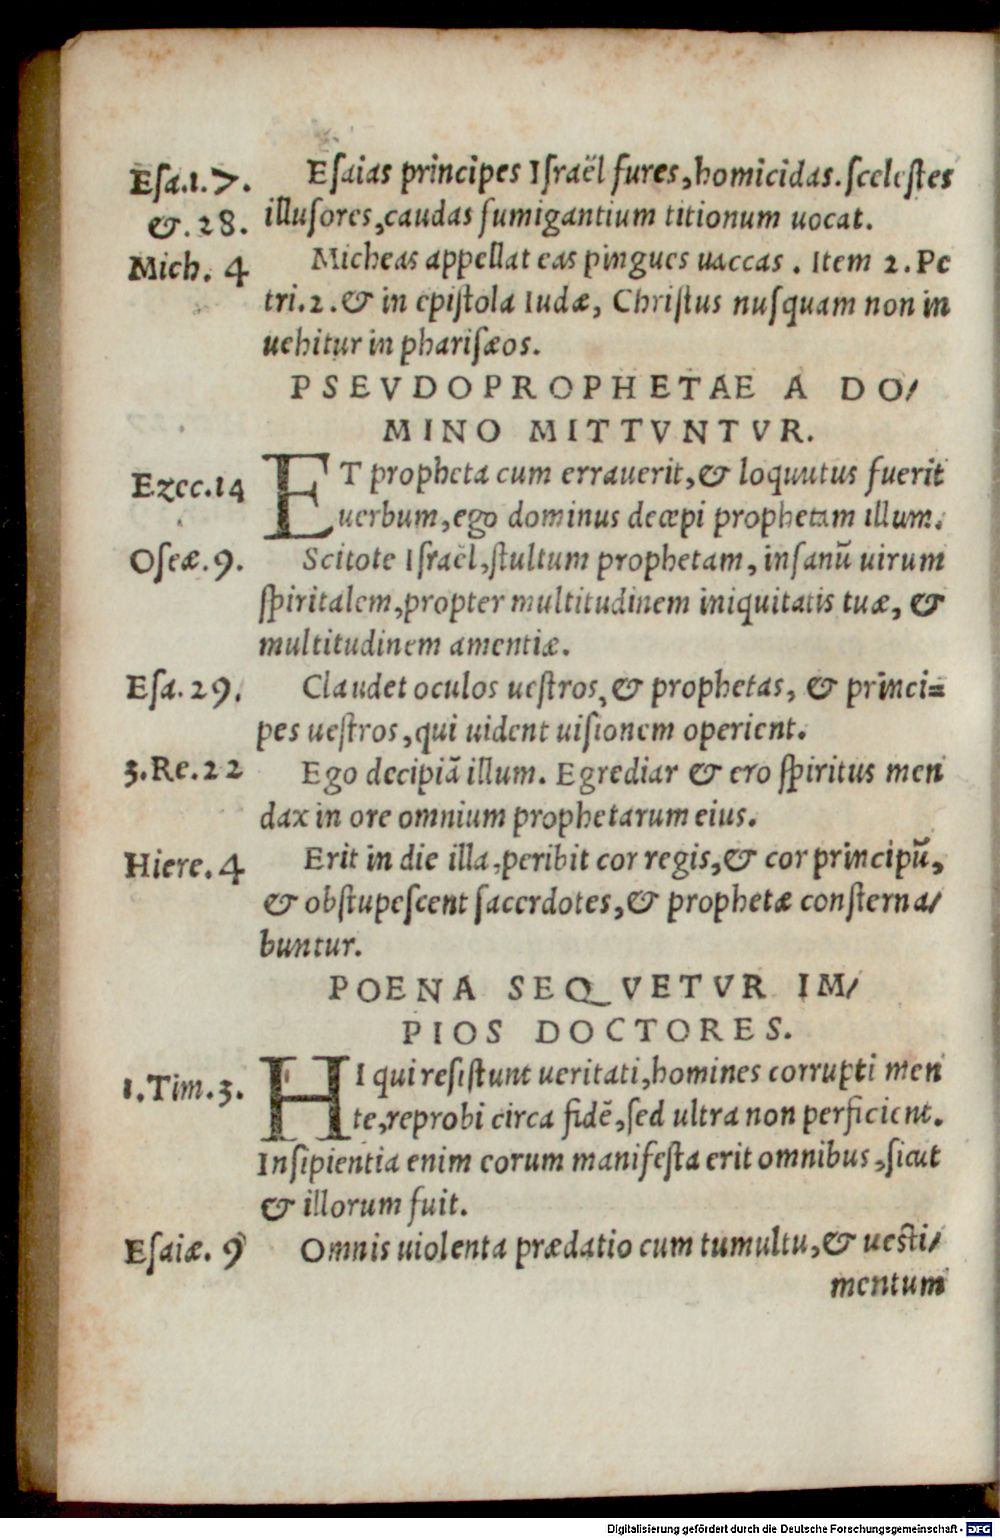 Esa.1.7. Esaias principes Israël fures, homicidas. scelestes
&. 28. illusores, caudas fumigantium titionum uocat.
Mich. 4 Micheas appellat eas pingues uaccas . Item 2. Pe
tri. 2. & in epistola Iudæ, Christus nusquam non in
uehitur in pharisæos.
PSEVDOPROPHETAE A DO/
MINO MITTVNTVR.
Ezec.14 ET propheta cum errauerit, & loquutus fuerit
uerbum, ego dominus decepi prophetam illum.
Oseæ. 9. Scitote Israël, stultum prophetam, insanũ uirum
spiritalem, propter multitudinem iniquitatis tuæ, &
multitudinem amentiæ.
Esa. 29. Claudet oculos uestros, & prophetas, & princi=
pes uestros, qui uident uisionem operient.
3. Re. 22 Ego decipiã illum. Egrediar & ero spiritus men
dax in ore omnium prophetarum eius.
Hiere. 4 Erit in die illa, peribit cor regis, & cor principũ,
& obstupescent sacerdotes, & prophetæ consterna/
buntur.
POENA SEQVETVR IM/
PIOS DOCTORES.
1. Tim. 3. HI qui resistunt ueritati, homines corrupti men
te, reprobi circa fidẽ, sed ultra non perficient.
Insipientia enim eorum manifesta erit omnibus, sicut
& illorum fuit.
Esaiæ. 9 Omnis uiolenta prædatio cum tumultu, & uesti/
mentum
Digitalisierung gefördert durch die Deutsche Forschungsgemeinschaft - DFG